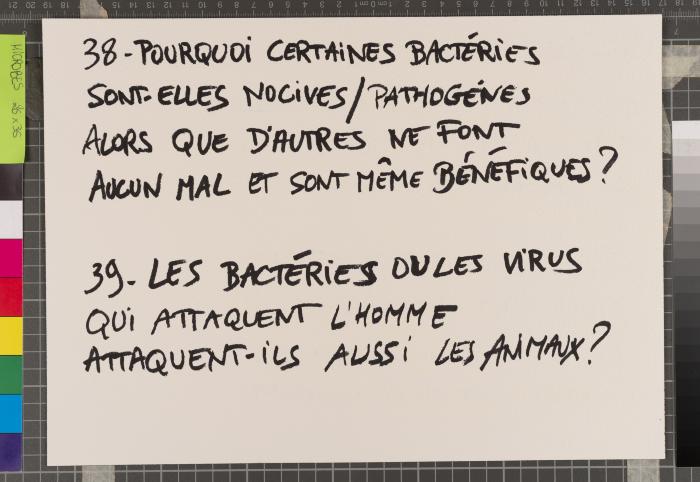 38-POURQUOI CERTAINES BACTÉRIES
SONT-ELLES NOCIVES/PATHOGÉNES
ALORS QUE D'AUTRES NE FONT
AUCUN MAL ET SONT MÊME BÉNÉFIQUES?
39- LES BACTÉRIES OU LES VIRUS
QUI ATTAQUENT L'HOMME
ATTAQUENT-ILS AUSSI LES ANIMAUX?
MICROBES 26 x 36